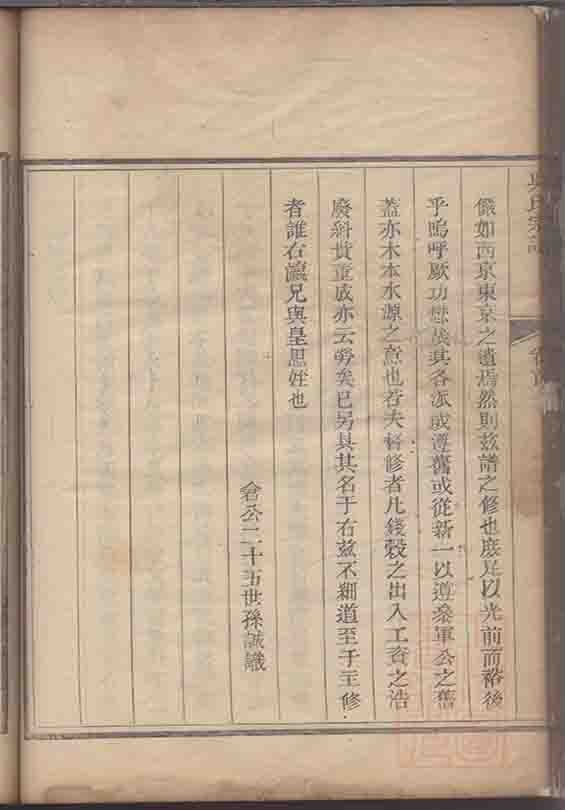 儼如西京東京之遺焉然則玆譜之修也庶足以光前而裕後
乎嗚呼厥功懋矣其各派或遵舊或從新一以遵叅軍公之舊
蓋亦木本水源之意也若夫督修者凡錢穀之出入工資之浩
廢斜貲董成亦云勞矣已另具其名于右玆不細道至于主修
者誰右瀛兄與皇思姪也
會公二十五世孫誠識
吳氏宗譜
卷首